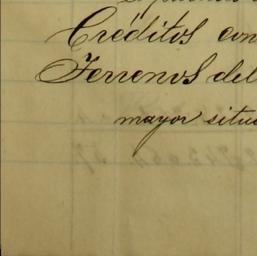 Créditos con
Terrenos del
mayor situ